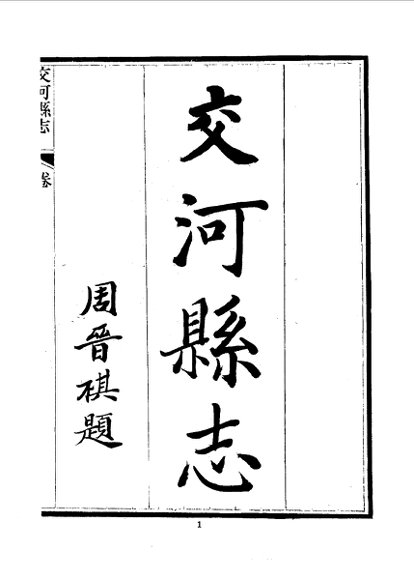 交河縣志
周晉祺題
交河縣志
卷
1